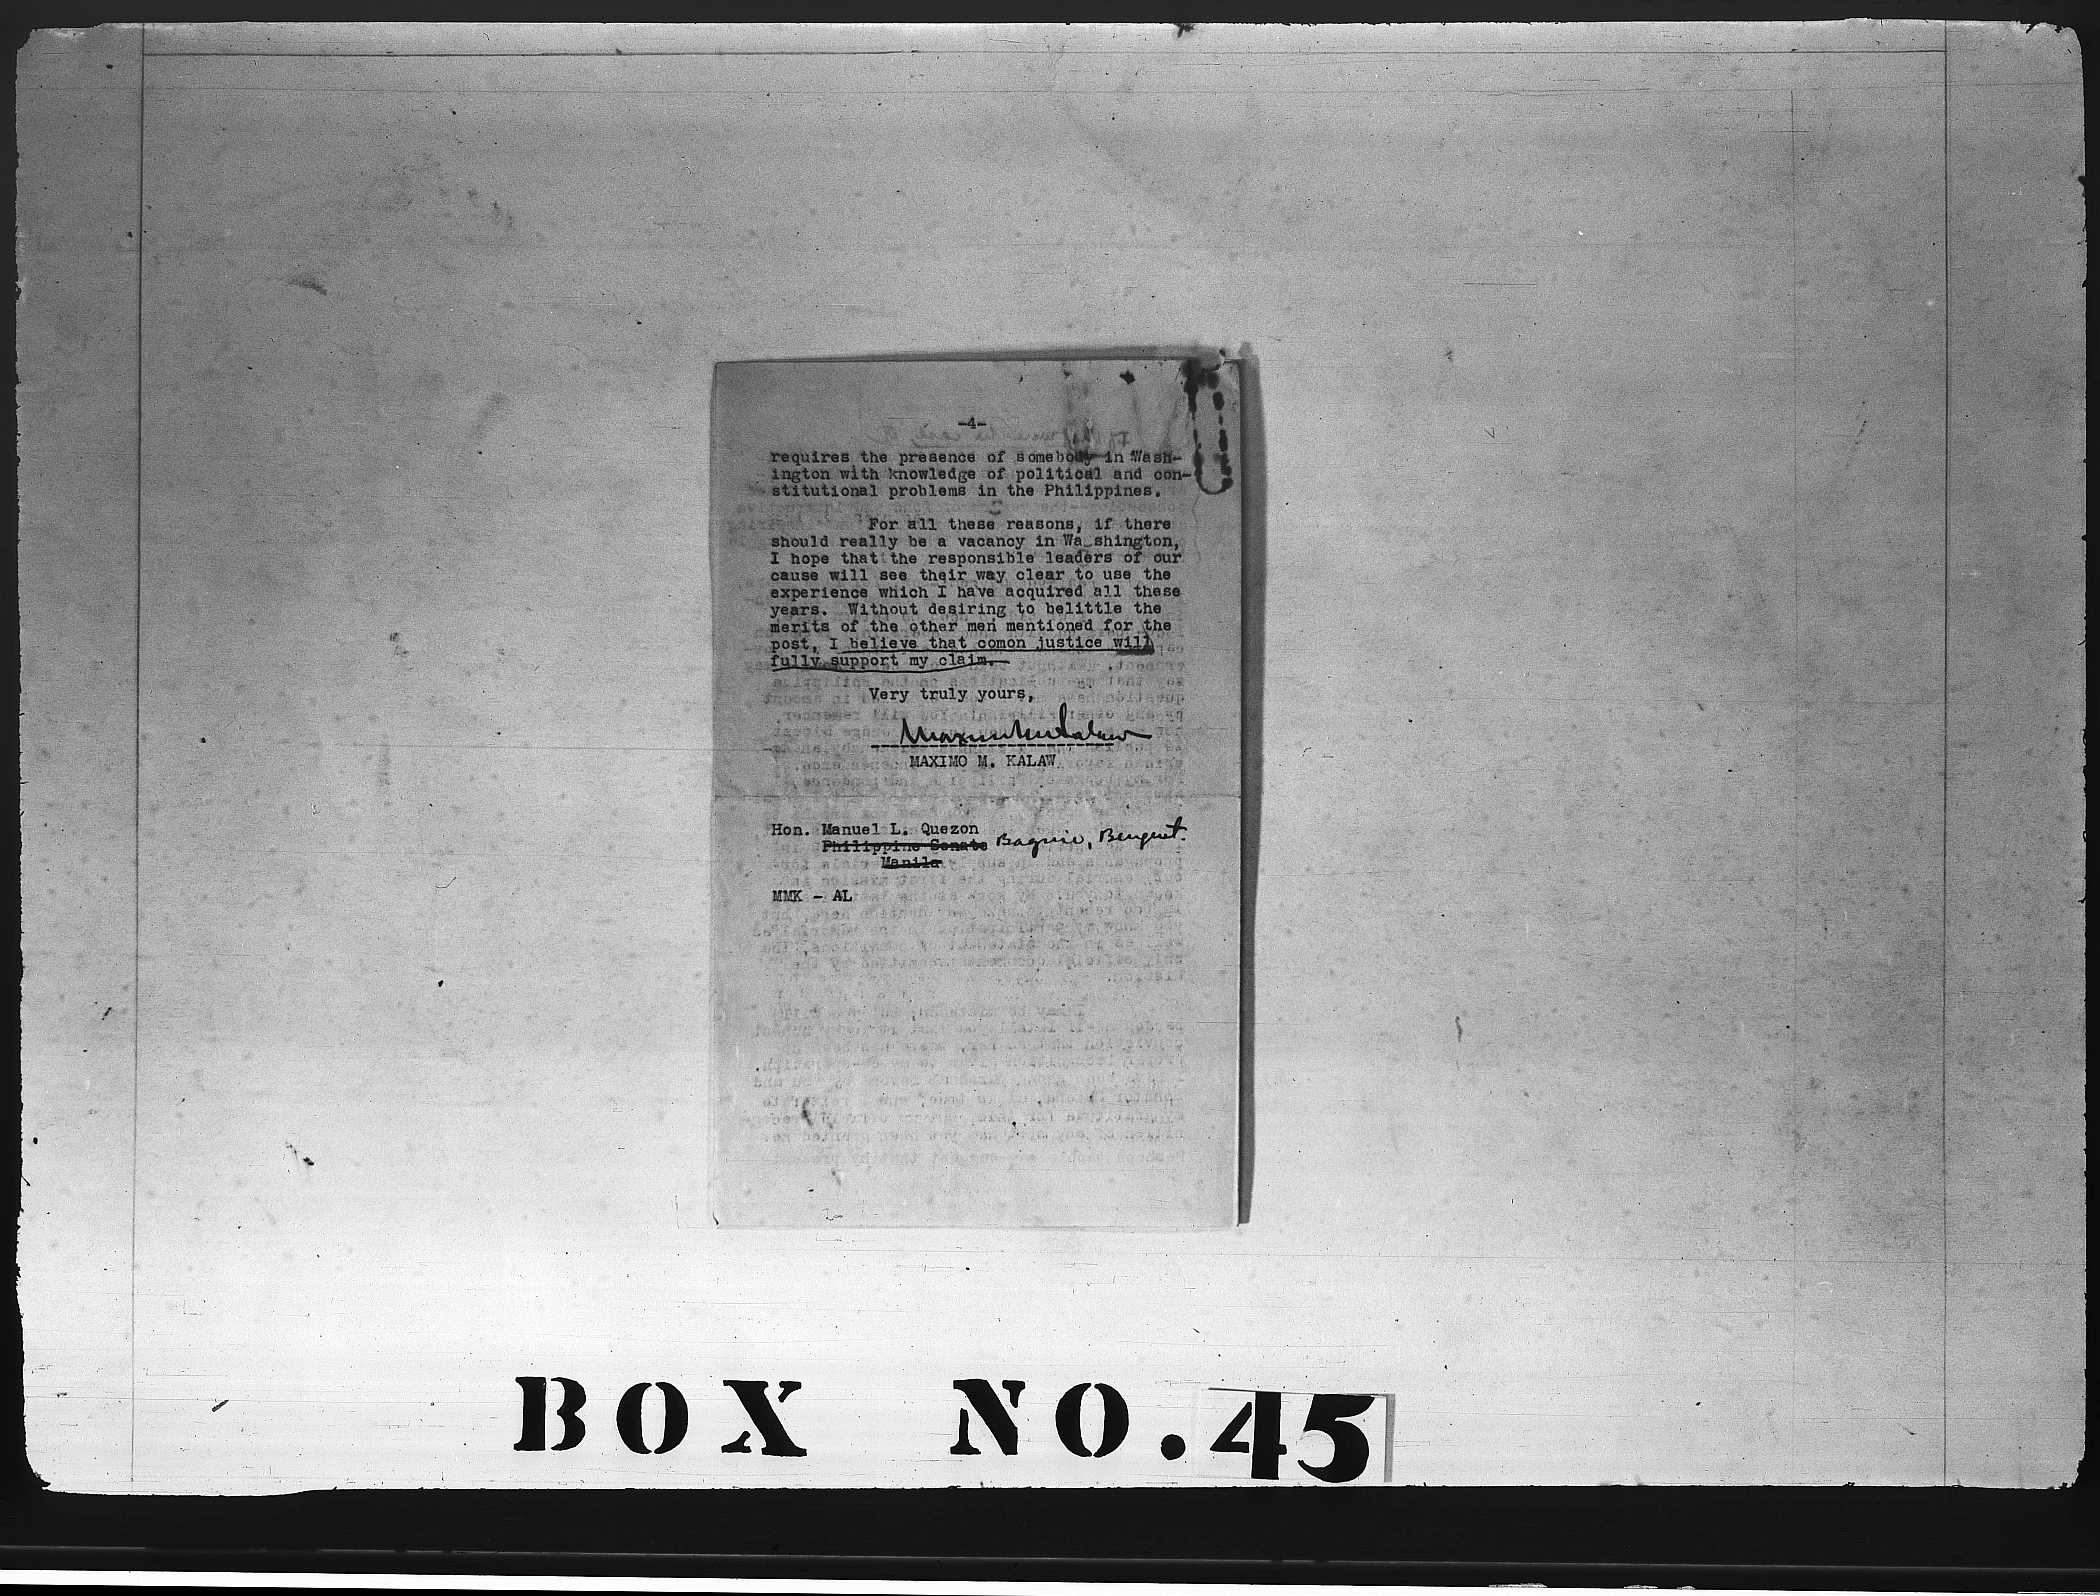 -4-
requires the presence of somebody in Wash-
ington with knowledge of political and con-
stitutional problems in the Philippines.
For all these reasons, if there
should really be a vacancy in Wa shington,
I hope that the responsible leaders of our
cause will see their way clear to use the
experience which I have acquired all these
years. Without desiring to belittle the
merits of the other men mentioned for the
post, I believe that comon justice will
fully support my claim.
Very truly yours,
Maximo M. Kalaw
MAXIMO M. KALAW
Hon. Manuel L. Quezon
Philippine Senate Baguio, Benguet.
Manila
MMK - AL
BOX NO. 45